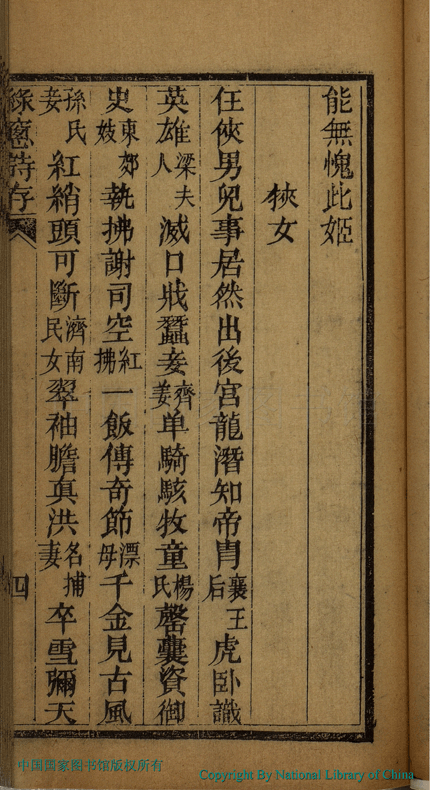 能無愧此姬
狹女
任俠男兒事居然出後宮龍潛知帝胄襄王后虎卧識
英雄梁夫人滅口戕蠶妾齊姜单騎駭牧童楊氏罄囊資御
史東郊妓執拂謝司空紅拂一飯傳奇節漂母千金見古風
孫氏妾紅綃頭可斷濟南民女翠袖膽真洪名捕妻卒雪彌天
綠窻詩存
四
中国国家图书馆版权所有
Copyright By National Library of China